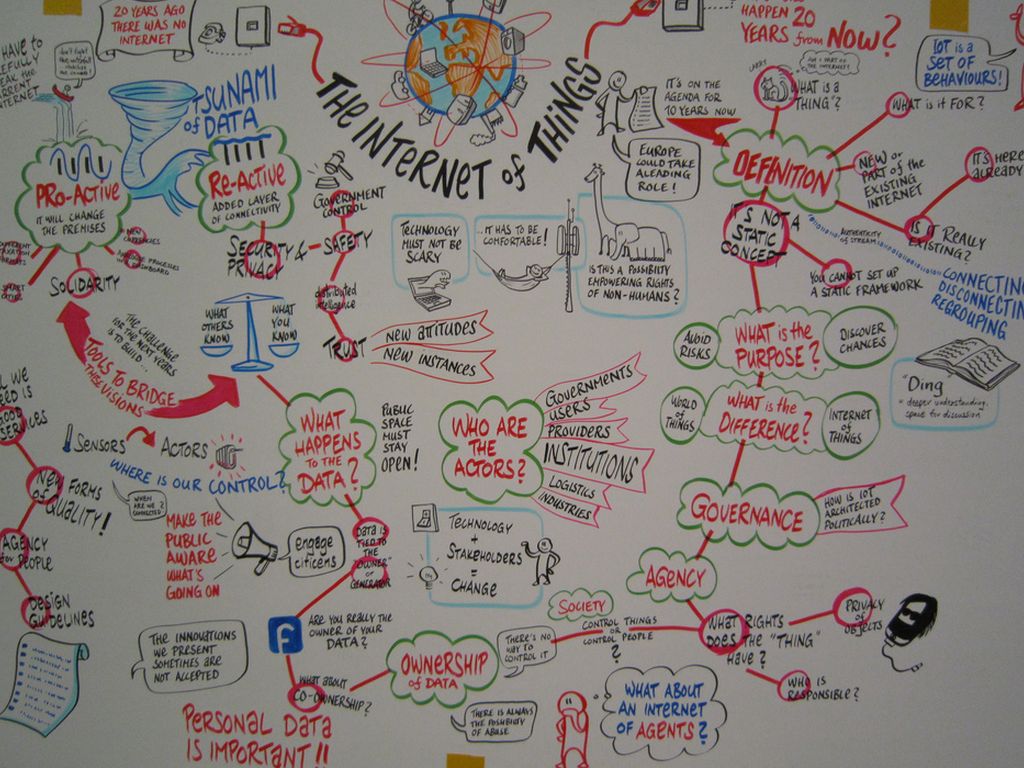 20 YEARS AGO
THERE WAS NO
INTERNET
THE INTERNET of THINGS
HAPPEN 20
YEARS from NOW?
IOT is a
SET OF
BEHAVIOURS!
HAVE to
TSUNAMI
of DATA
PRO-ACTIVE
IT WILL CHANGE
THE PREMISES
RE-ACTIVE
ADDED LAYER
OF CONNECTIVITY
GOVERNMENT
CONTROL
SECURITY &
PRIVACY
SAFETY
distributed
intelligence
TRUST
NEW ATTITUDES
NEW INSTANCES
SOLIDARITY
THE CHALLENGE
FOR THE NEXT YEARS
IS TO BUILD...
TOOLS TO BRIDGE
THESE VISIONS
WHAT
OTHERS
KNOW
WHAT
YOU
KNOW
TECHNOLOGY
MUST NOT BE
SCARY
...IT HAS TO BE
COMFORTABLE!
IS THIS A POSSIBILITY
EMPOWERING RIGHTS
OF NON-HUMANS?
IT'S ON THE
AGENDA FOR
10 YEARS NOW
EUROPE
COULD TAKE
A LEADING
ROLE!
DEFINITION
WHAT IS A
"THING"?
WHAT is it FOR?
NEW OR
PART OF THE
EXISTING
INTERNET
IT'S HERE
ALREADY
IS it REALLY
EXISTING?
IT'S NOT A
STATIC
CONCEPT
AUTHENTICITY
OF STREAM
YOU CANNOT SET UP
A STATIC FRAMEWORK
CONNECTING
DISCONNECTING
REGROUPING
AVOID
RISKS
WHAT is the
PURPOSE?
DISCOVER
CHANCES
"Ding"
= deeper understanding,
space for discussion
WORLD
of
THINGS
WHAT is the
DIFFERENCE?
INTERNET
of THINGS
SENSORS
ACTORS
WHERE IS OUR CONTROL?
WHEN
ARE WE
CONNECTED
WHAT
HAPPENS
TO the
DATA?
PUBLIC
SPACE
MUST
STAY
OPEN!
WHO ARE
THE
ACTORS?
GOVERNMENTS
USERS
PROVIDERS
INSTITUTIONS
LOGISTICS
INDUSTRIES
GOVERNANCE
HOW IS IOT
ARCHITECTED
POLITICALLY?
NEW FORMS
of QUALITY!
AGENCY
for PEOPLE
DESIGN
GUIDELINES
MAKE THE
PUBLIC
AWARE
WHAT'S
GOING ON
engage
citizens
DATA IS
TIED TO
THE
"OWNER"
or
GENERATOR
TECHNOLOGY
+
STAKEHOLDERS
=
CHANGE
AGENCY
SOCIETY
CONTROL THINGS
OR
CONTROL PEOPLE
?
WHAT RIGHTS
DOES THE "THING"
HAVE?
PRIVACY
OF
OBJECTS
WHO IS
RESPONSIBLE?
THE INNOVATIONS
WE PRESENT
SOMETIMES ARE
NOT ACCEPTED
f
ARE YOU REALLY THE
OWNER OF YOUR
DATA?
WHAT ABOUT
CO-OWNERSHIP?
OWNERSHIP
of DATA
THERE'S NO
WAY TO
CONTROL IT
THERE IS ALWAYS
THE POSSIBILITY
OF ABUSE
WHAT ABOUT
AN INTERNET
OF AGENTS?
PERSONAL DATA
IS IMPORTANT!!